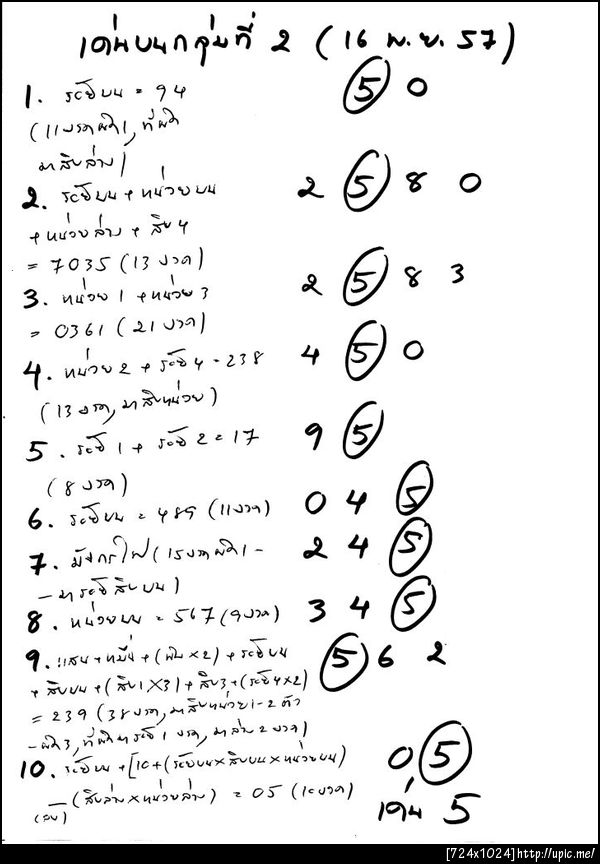 เด่นบนกลุ่มที่ 2 (16 พ.ย. 57)
1. ระยีบน = 94 5 0
(11งวดผิด1, ที่ผิด
มาสิบล่าง)
2. ระยีบน + หน่วยบน 2 5 8 0
+ หน่วยล่าง + สิบ4
= 7035 (13 งวด)
3. หน่วย 1 + หน่วย 3 2 5 8 3
= 0361 (21 งวด)
4. หน่วย 2 + ระยี 4 = 238 4 5 0
(13 งวด, มาสิบหน่วย)
5. ระยี 1 + ระยี 2 = 17 9 5
(8 งวด)
6. ระยีบน = 489 (11งวด) 0 4 5
7. มังกรไฟ (15งวดผิด1 - 2 4 5
- มาระยีสิบบน)
8. หน่วยบน = 567 (9งวด) 3 4 5
9. แสน + หมื่น + (พัน x 2) + ระยีบน 5 6 2
+ สิบบน + (สิบ1 X 3) + สิบ3 + (ระยี4 x 2)
= 239 (38งวด, มาสิบหน่วย1-2 ตัว
- ผิด3, ที่ผิดมาระยี 1 งวด, มาล่าง 2 งวด)
10. ระยีบน + [10 + (ระยีบน x สิบบน x หน่วยบน) 0 5
- (สิบล่าง x หน่วยล่าง) = 05 (10งวด)
(ลบ)
เด่น 5
[724x1024]http://upic.me/